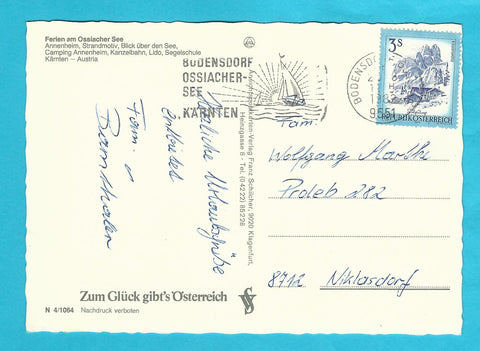 Ferien am Ossiacher See
Annenheim, Strandmotiv, Blick über den See,
Camping Annenheim, Kanzelbahn, Lido, Segelschule
Kärnten – Austria
BODENSDORF
OSSIACHER-
SEE
KÄRNTEN
BODENSDORF
9551
3 S
REPUBLIK ÖSTERREICH
Fam.
Wolfgang
Proleb 282
8712 Niklasdorf
Herzliche Urlaubsgrüße
Fam.
Ansichtskarten-Verlag Franz Schilcher, 9020 Klagenfurt,
Heinzgasse 8 - Tel. (04222) 85228
Zum Glück gibt's Österreich
N 4/1064 Nachdruck verboten